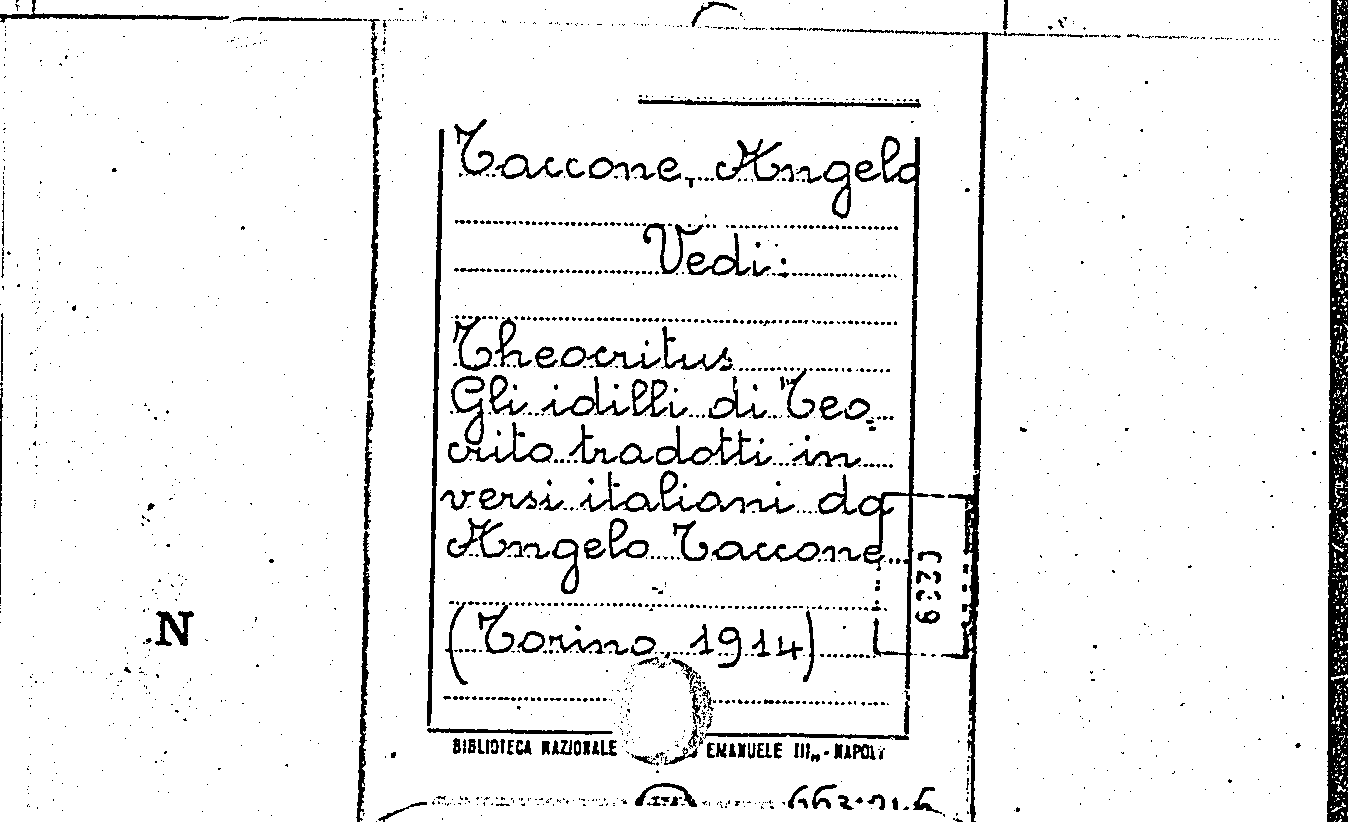 Taccone, Angelo
Vedi:
Theocritus
Gli idilli di Teo
crito tradotti in
versi italiani da
Angelo Taccone
(Torino, 1914)
N
BIBLIOTECA NAZIONALE EMANUELE III„ - NAPOLI